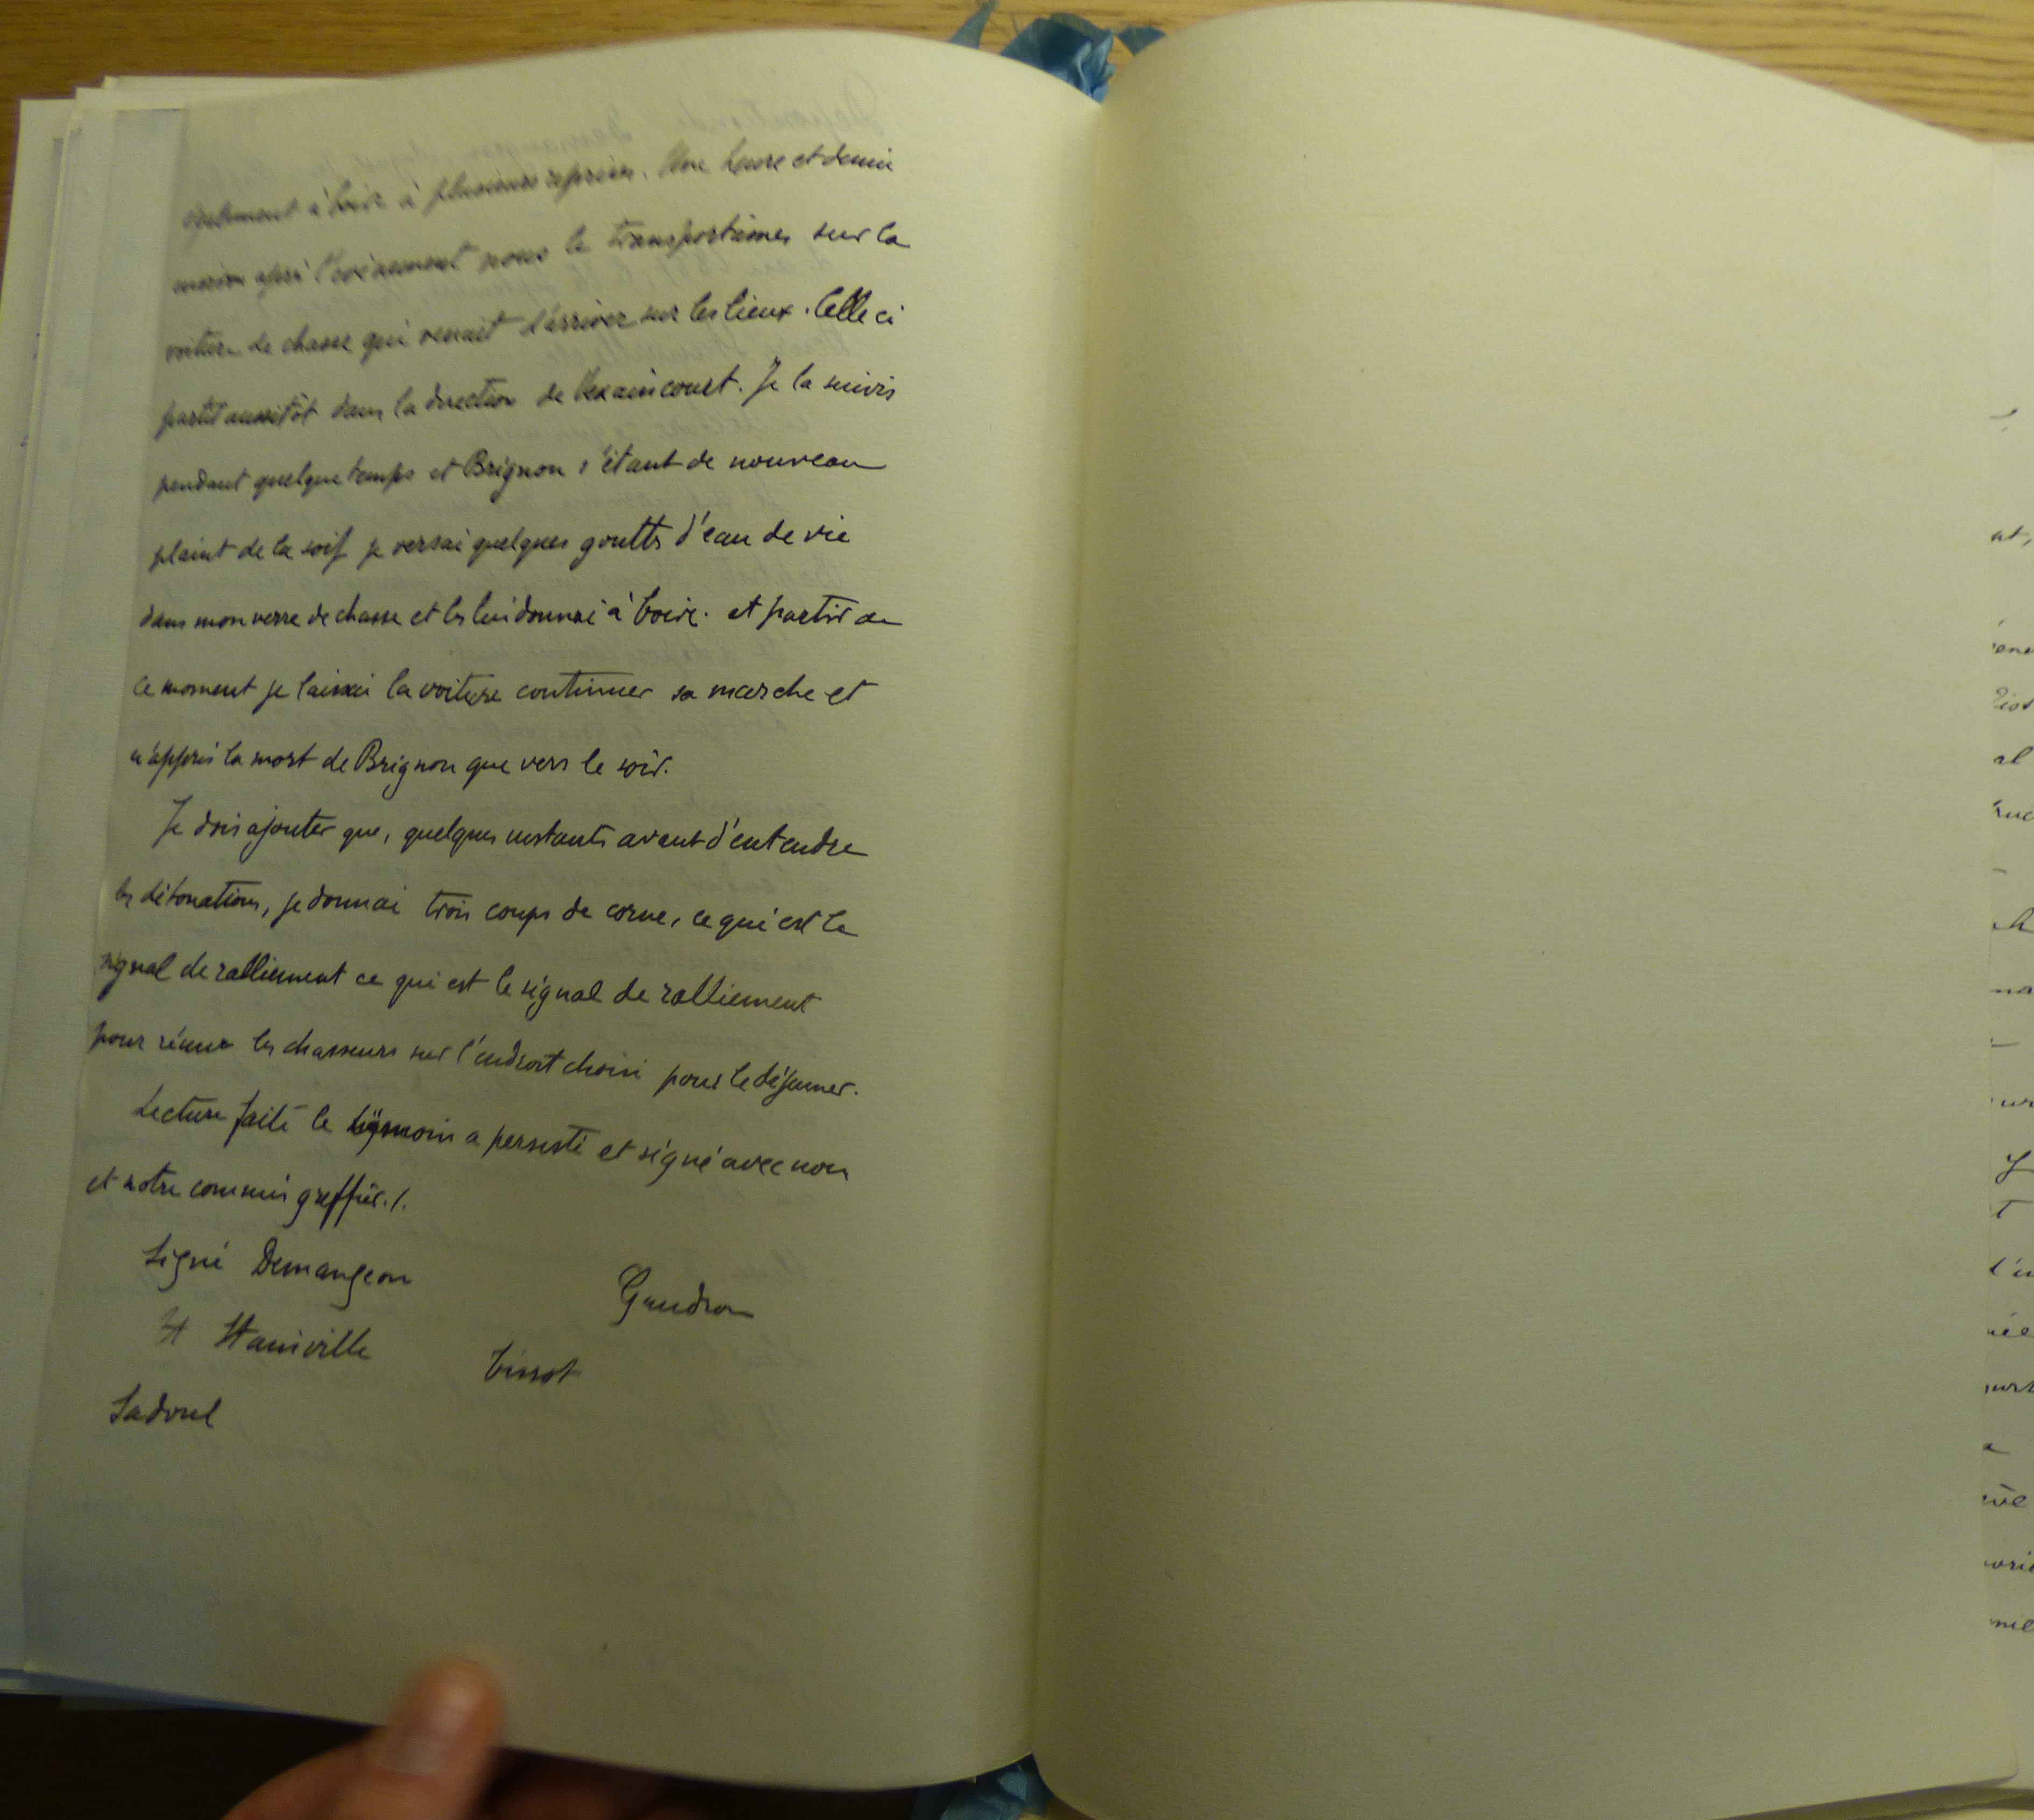 également à boire à plusieurs reprises. Une heure et demie
environ après l'événement nous le transportâmes sur la
voiture de chasse qui venait d'arriver sur les lieux. Celle ci
partit aussitôt dans la direction de Vexaincourt. Je la suivis
pendant quelque temps et Brignon s'étant de nouveau
plaint de la soif je versai quelques gouttes d'eau de vie
dans mon verre de chasse et les lui donnai à boire. et partir de
ce moment je laissai la voiture continuer sa marche et
n'appris la mort de Brignon que vers le soir.
Je dois ajouter que, quelques instants avant d'entendre
les détonations, je donnai trois coups de corne, ce qui est le
signal de ralliement ce qui est le signal de ralliement
pour réunir les chasseurs sur l'endroit choisi pour le déjeuner.
Lecture faite le témoin a persisté et signé avec nous
et notre commis greffier./.
Signé Demangeon
Gaudron
H Haniville
Tissot
Sadoul